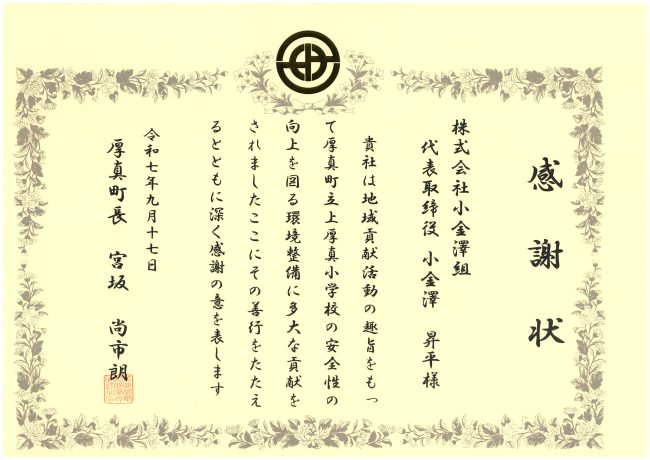 感謝状
株式会社小金澤組
代表取締役 小金澤 昇平様
貴社は地域貢献活動の趣旨をもっ
て厚真町立上厚真小学校の安全性の
向上を図る環境整備に多大な貢献を
されましたここにその善行をたたえ
るとともに深く感謝の意を表します
令和七年九月十七日
厚真町長 宮坂 尚市朗